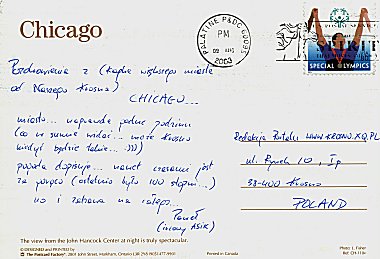 Chicago
PALATINE P&DC 60095
PM
2003
SPECIAL OLYMPICS
Pozdrowienia z (kapkę większego miasta
od Naszego Krosna)
CHICAGO...
miasto... naprawdę jedne
(co w sumie widać... może Krosno
kiedyś będzie takie... :)))
pogoda dopisuje... nawet czasami jest
za gorąco (ostatnio było 100 stopni...)
no i zabawa na całego...
Paweł
Redakcja Portalu WWW.KROSNO.XQ.PL
ul. Rynek 10, Ip
38-400 Krosno
POLAND
The view from the John Hancock Center at night is truly spectacular.
© DESIGNED and PRINTED by
The Postcard Factory
2801 John Street, Markham, Ontario L3R 2Y8 (905) 477-9901
Printed in Canada
Photo: L. Fisher